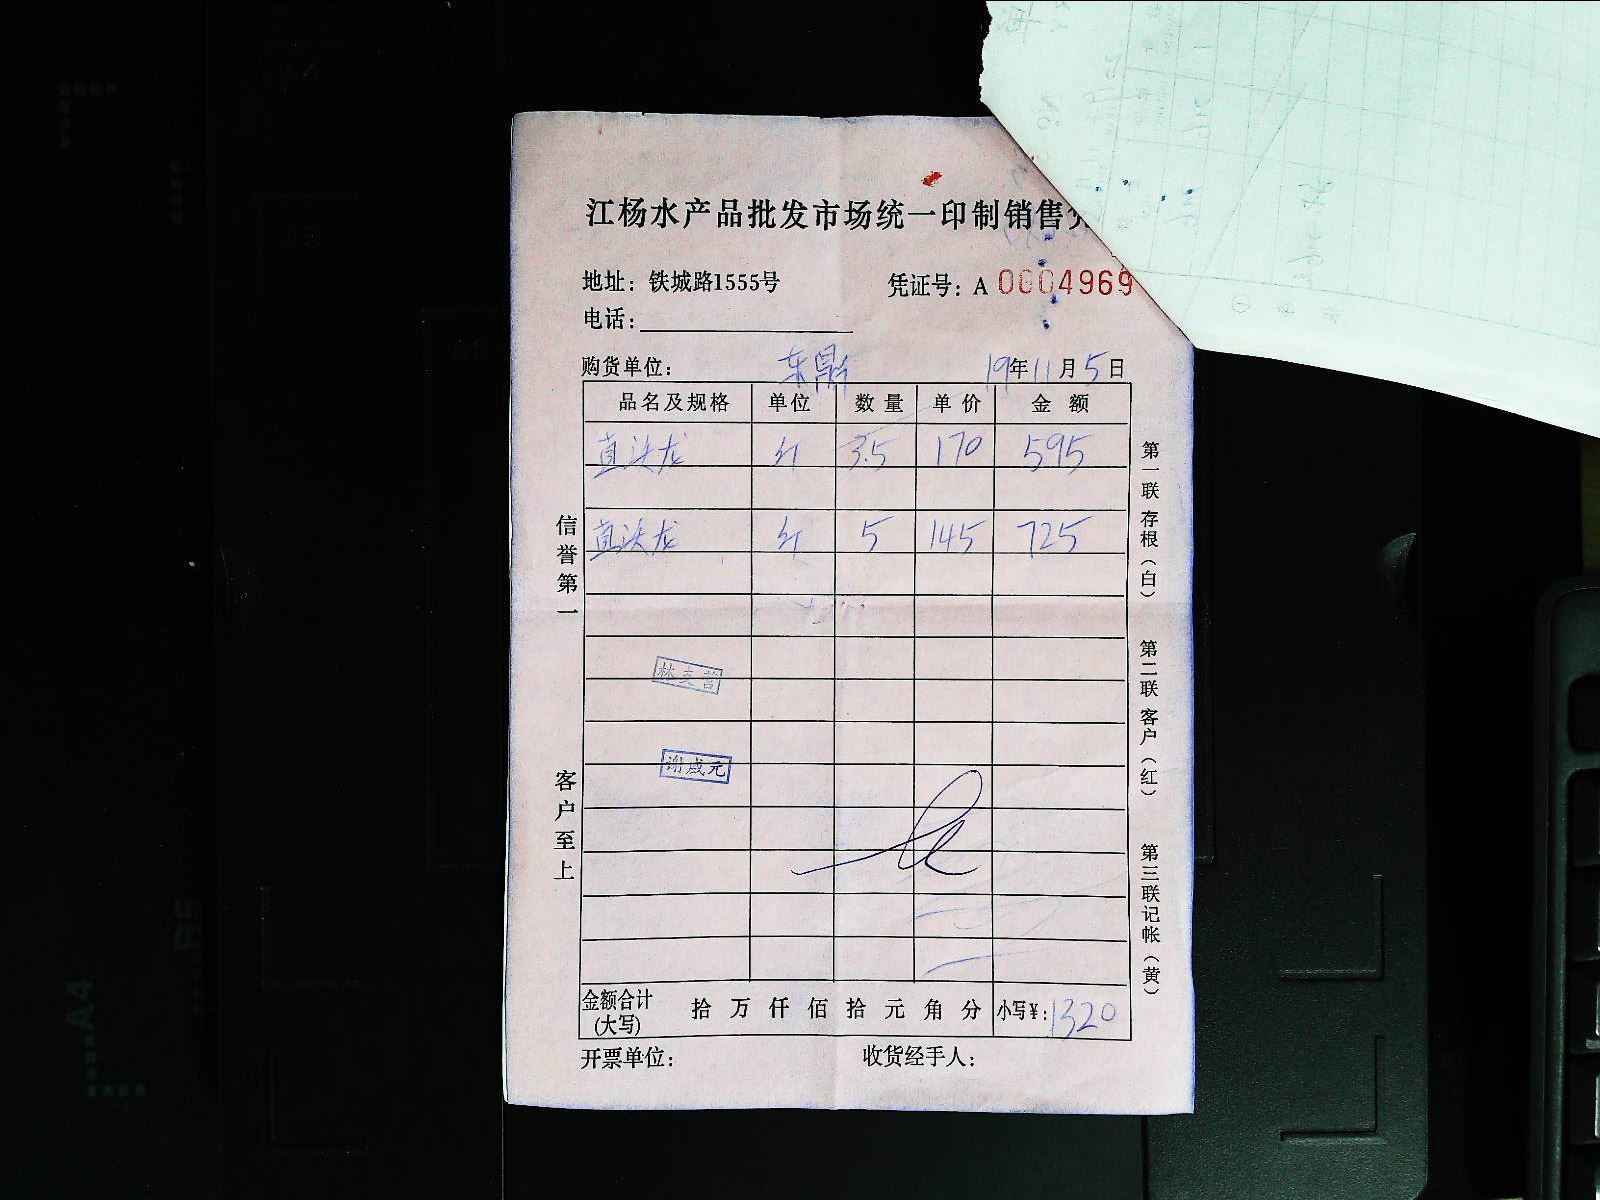 江杨水产品批发市场统一印制销售
地址：铁城路1555号
凭证号：A 0004969
电话：
购货单位： 东鼎 19年11月5日
品名及规格 单位 数量 单价 金额
直法龙 斤 3.5 170 595
直法龙 斤 5 145 725
林支营
谢成元
金额合计(大写) 拾 万 仟 佰 拾 元 角 分 小写¥：1320
开票单位： 收货经手人：
信誉第一
客户至上
第一联 存根（白）
第二联 客户（红）
第三联 记帐（黄）
A4
B5